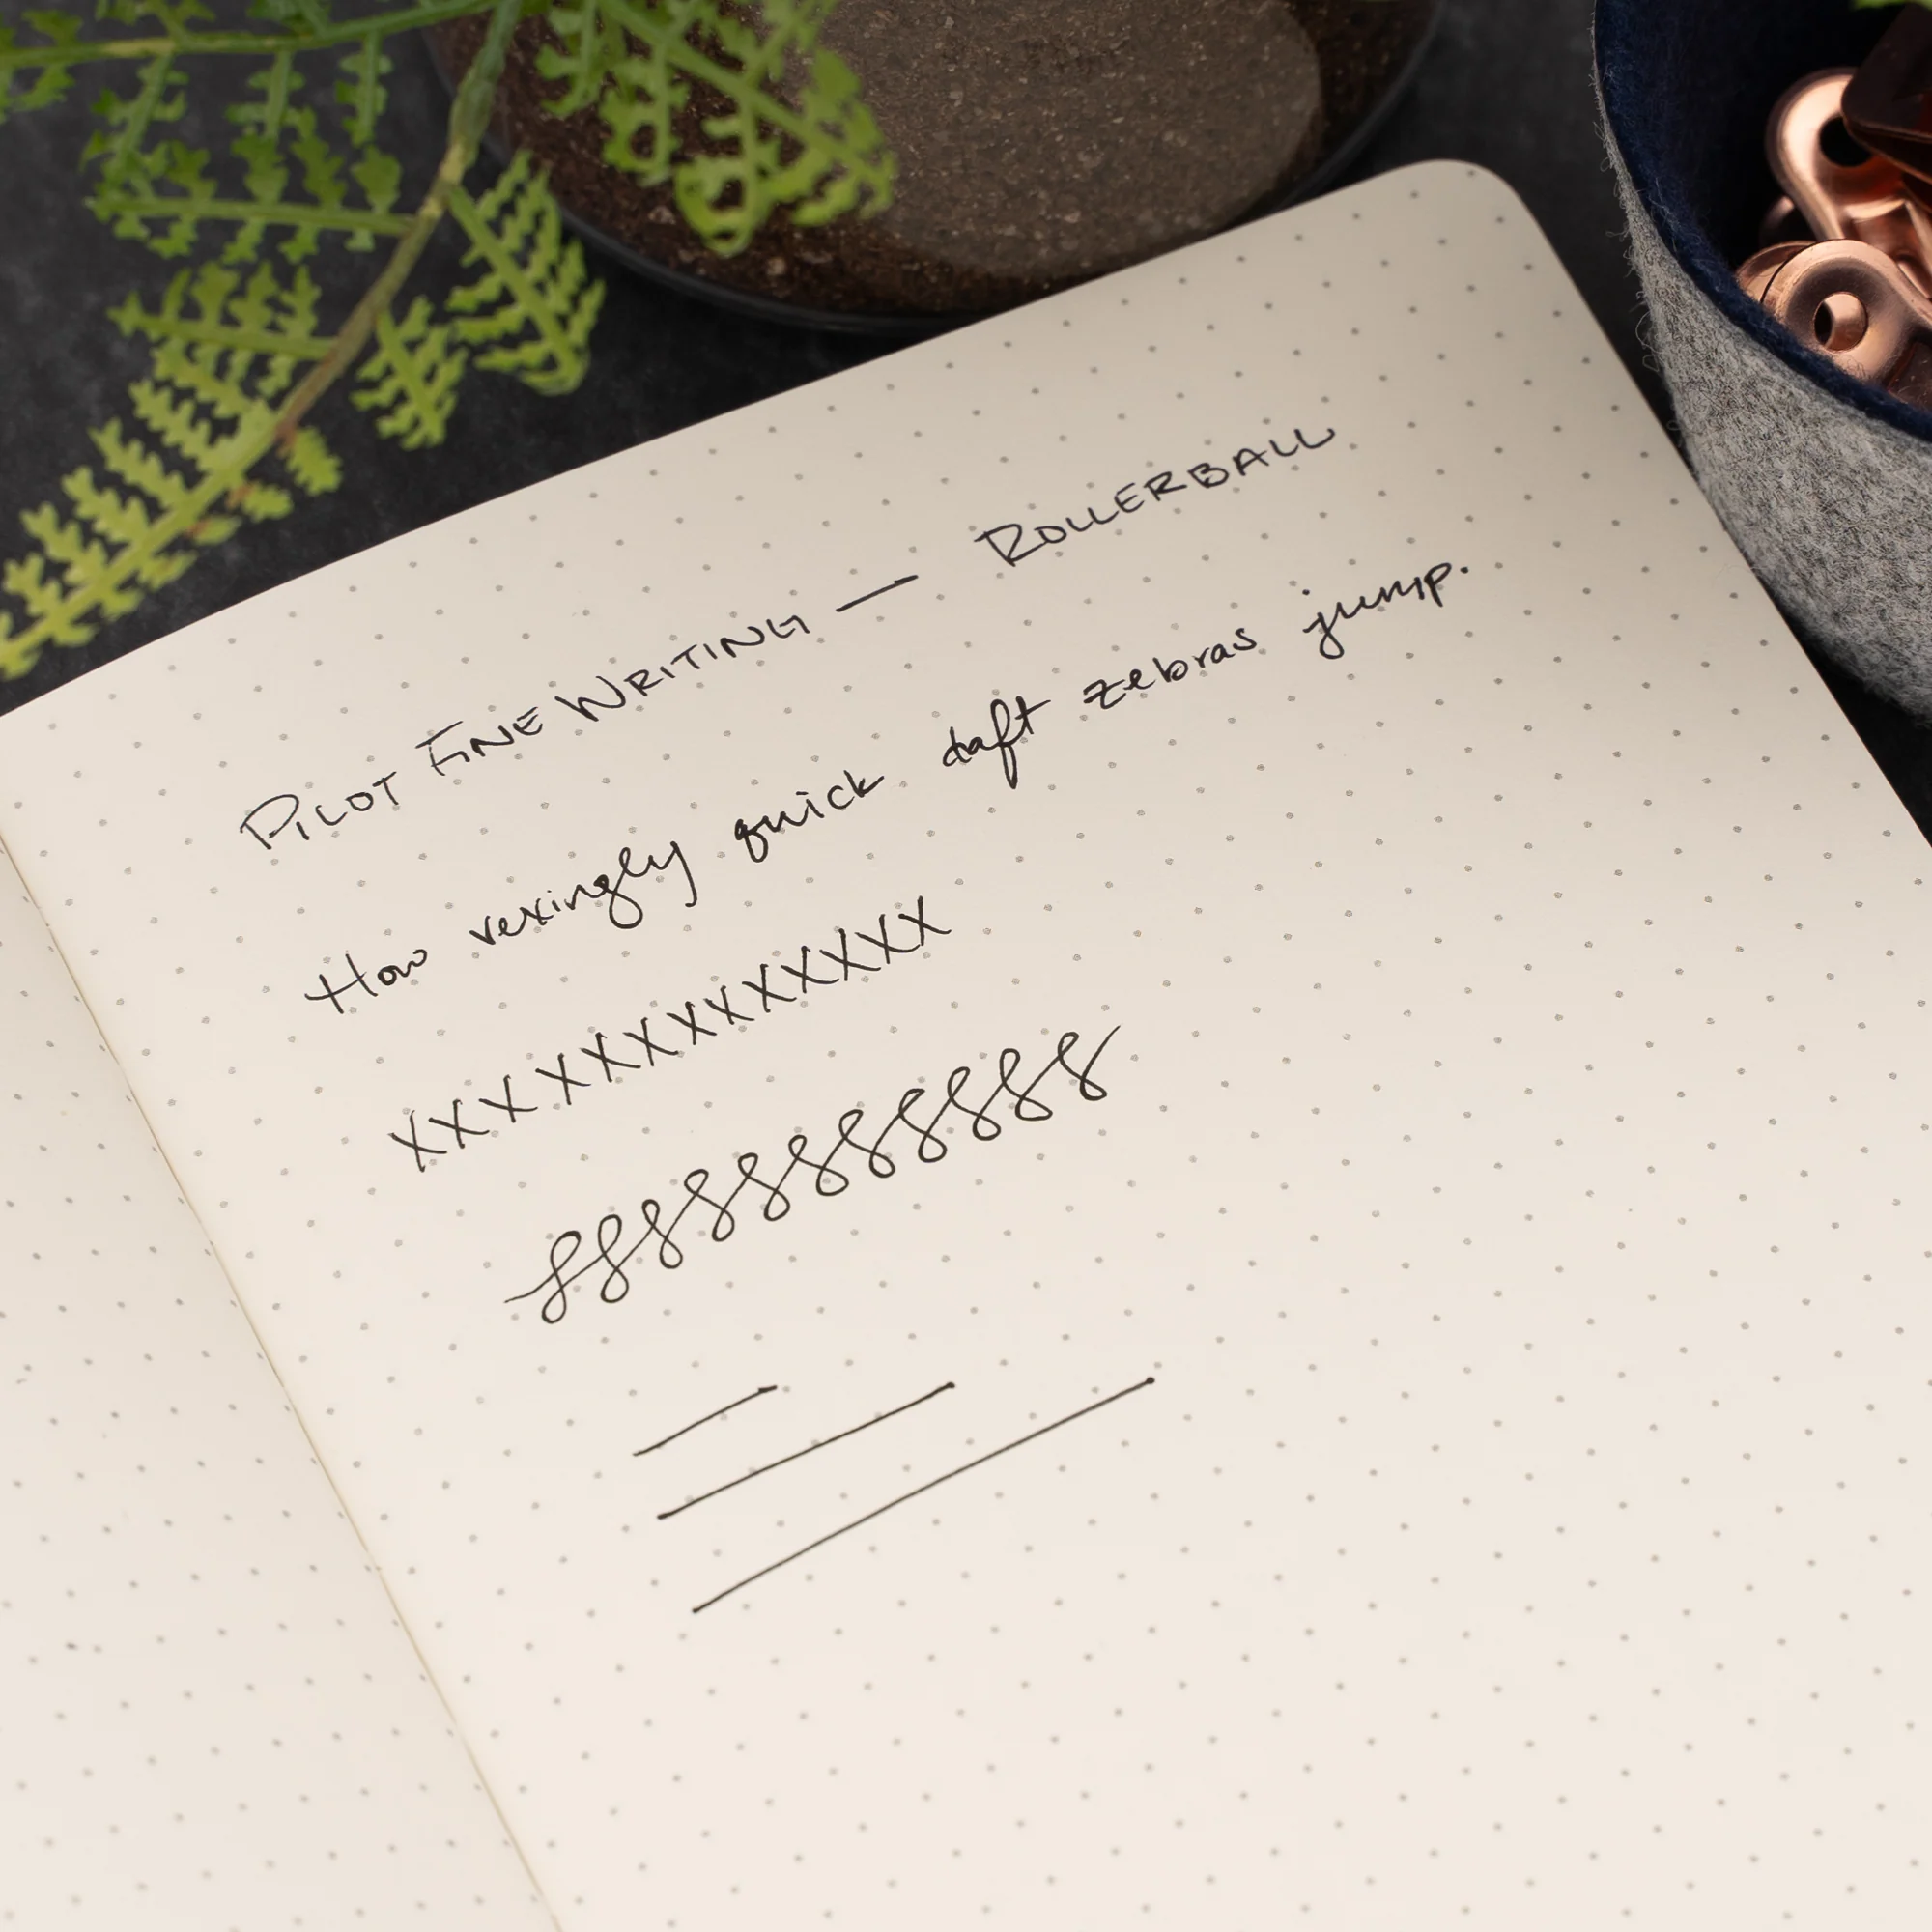 PILOT FINE WRITING — ROLLERBALL
How vexingly quick daft zebras jump.
XXXXXXXXXXXXX